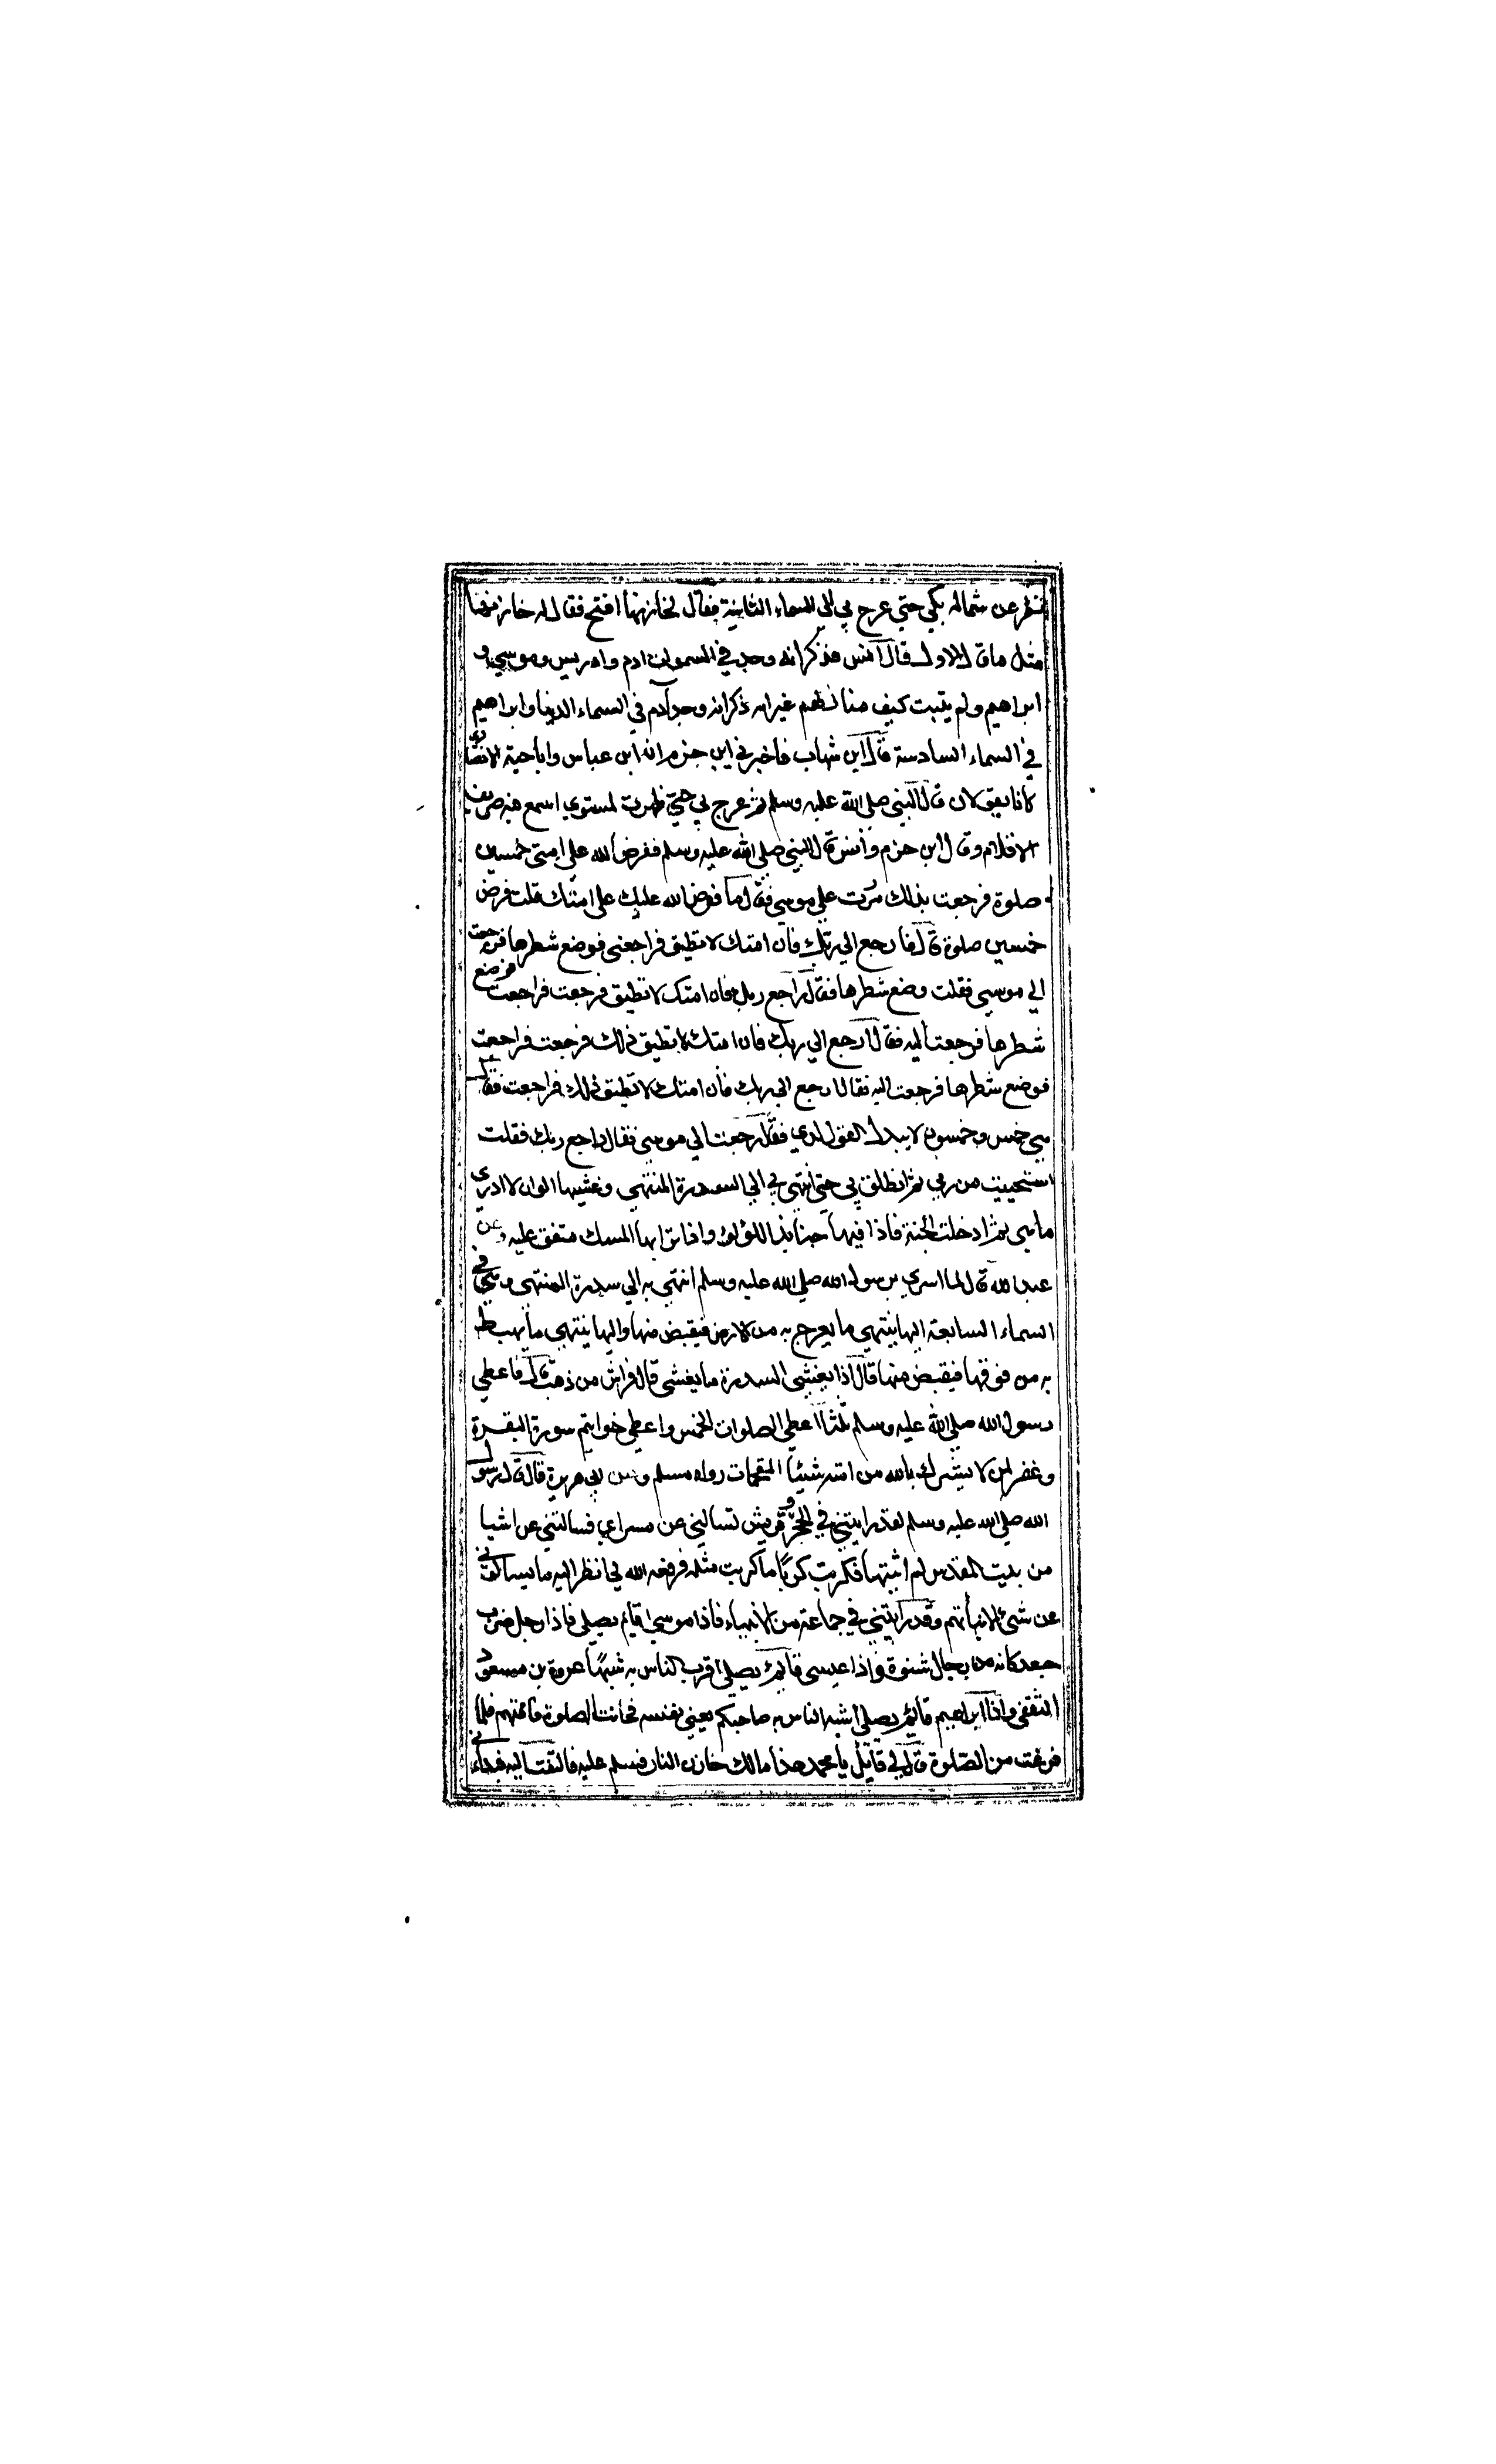 نظر عن شماله بكي حتي عرج بي الي السماء الثانية فقال لخازنها افتح فقال له خازنها
مثل ما قال الاول قال انس فذكر انه وجد في السموات ادم وادريس وموسي و
ابراهيم ولم يثبت كيف منازلهم غير انه ذكر انه وجد آدم في السماء الدنيا وابراهيم
في السماء السادسة قال ابن شهاب فاخبرني ابن حزم ان ابن عباس واباحية الانصاري
كانا يقولان قال النبي صلي الله عليه وسلم ثم عرج بي حتي ظهرت لمستوي اسمع فيه صريف
الاقلام وقال ابن حزم وانس قال النبي صلي الله عليه وسلم ففرض الله علي امتي خمسين
صلوة فرجعت بذلك مررت علي موسي فقال ما فرض الله عليك علي امتك قلت فرض
خمسين صلوة قال فارجع الي ربك فان امتك لا تطيق فراجعني فوضع شطرها فرجعت
الي موسي فقلت وضع شطرها فقال راجع ربك فان امتك لا تطيق فرجعت فراجعت فوضع
شطرها فرجعت اليه فقال ارجع الي ربك فان امتك لا تطيق ذلك فرجعت فراجعت
فوضع شطرها فرجعت اليه فقال ارجع الي ربك فان امتك لا تطيق ذلك فراجعت فقال
هي خمس وخمسون لا يبدل القول لدي فرجعت الي موسي فقال راجع ربك فقلت
استحييت من ربي ثم انطلق بي حتي انتهي بي الي السدرة المنتهي وغشيها الوان لا ادري
ما هي ثم ادخلت الجنة فاذا فيها جنابذ اللؤلؤ واذا ترابها المسك متفق عليه وعن
عبد الله قال لما اسري برسول الله صلي الله عليه وسلم انتهي به الي سدرة المنتهي وهي في
السماء السابعة اليها ينتهي ما يعرج به من الارض فيقبض منها واليها ينتهي ما يهبط
به من فوقها فيقبض منها قال اذ يغشي السدرة ما يغشي قال فراش من ذهب قال فاعطي
رسول الله صلي الله عليه وسلم ثلثا اعطي الصلوات الخمس واعطي خواتيم سورة البقرة
وغفر لمن لا يشرك بالله من امته شيئا المقحمات رواه مسلم وعن ابي هريرة قال قال رسول
الله صلي الله عليه وسلم لقد رايتني في الحجر وقريش تسالني عن مسراي فسالتني عن اشيا
من بيت المقدس لم اثبتها فكربت كربا ما كربت مثله فرفعه الله لي انظر اليه ما يسالوني
عن شيء الا انباتهم وقد رايتني في جماعة من الانبياء فاذا موسي قايم يصلي فاذا رجل ضرب
جعد كانه من رجال شنوة واذا عيسي قايم يصلي اقرب الناس به شبها عروة بن مسعود
الثقفي واذا ابراهيم قايم يصلي اشبه الناس به صاحبكم يعني نفسه فحانت الصلوة فاممتهم فلما
فرغت من الصلوة قال لي قايل يا محمد هذا مالك خازن النار فسلم عليه فالتفت اليه فبداني